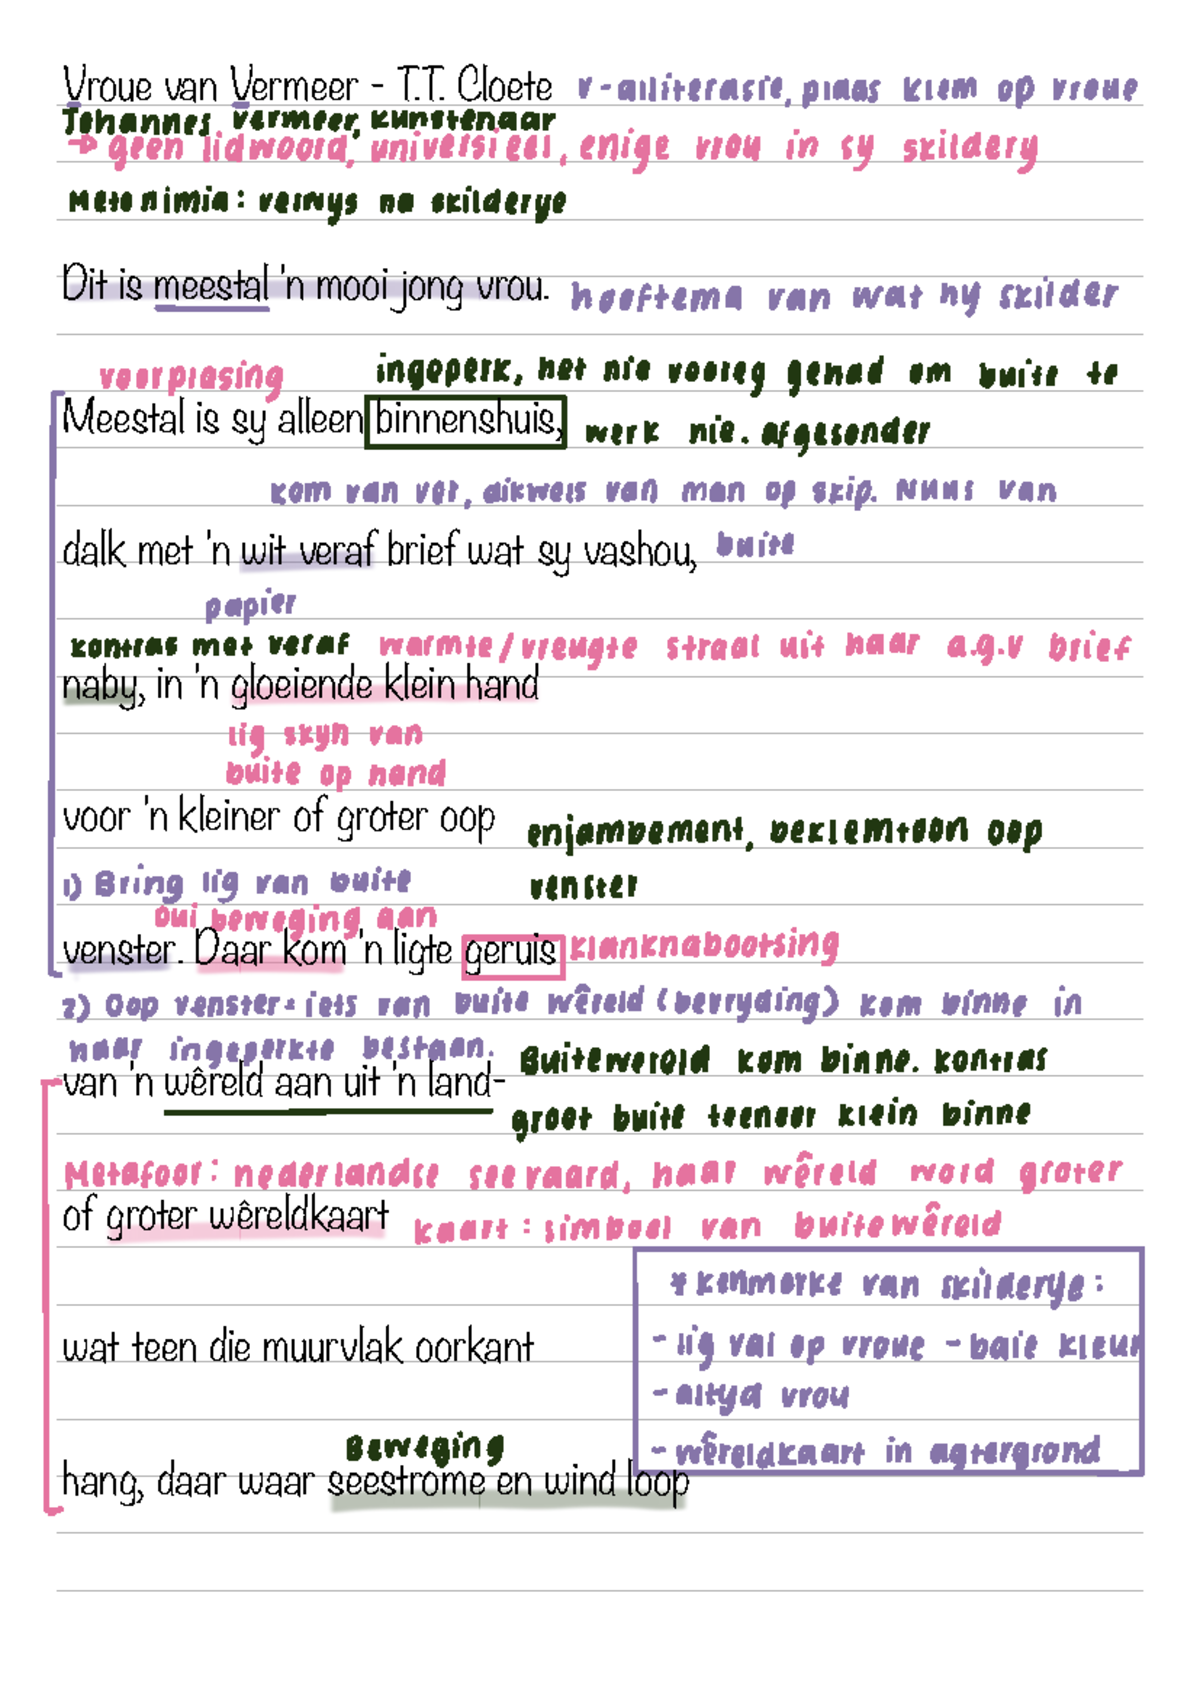 Vroue van Vermeer - T.T. Cloete v-alliterasie, plaas klem op vroue
Johannes Vermeer, kunstenaar
→ geen lidwoord, universieel, enige vrou in sy skildery
Metonimia: verwys na skilderye
Dit is meestal 'n mooi jong vrou. hooftema van wat hy skilder
voorplasing ingeperk, het nie vooreg gehad om buite te
Meestal is sy alleen binnenshuis, werk nie. afgesonder
kom van ver, dikwels van man op skip. Nuus van
dalk met 'n wit veraf brief wat sy vashou, buite
papier
kontras met veraf warmte/vreugte straal uit haar a.g.v brief
naby, in 'n gloeiende klein hand
lig skyn van
buite op hand
voor 'n kleiner of groter oop enjambement, beklemtoon oop
1) Bring lig van buite venster
dui beweging aan
venster. Daar kom 'n ligte geruis klanknabootsing
2) Oop venster = iets van buite wêreld (bevryding) kom binne in
haar ingeperkte bestaan. Buitewereld kom binne. kontras
van 'n wêreld aan uit 'n land-
groot buite teenoor klein binne
Metafoor: nederlandse seevaard, haar wêreld word groter
of groter wêreldkaart kaart: simbool van buitewêreld
* kenmerke van skilderye:
wat teen die muurvlak oorkant - lig val op vroue - baie kleur
- altyd vrou
Beweging - wêreldkaart in agtergrond
hang, daar waar seestrome en wind loop